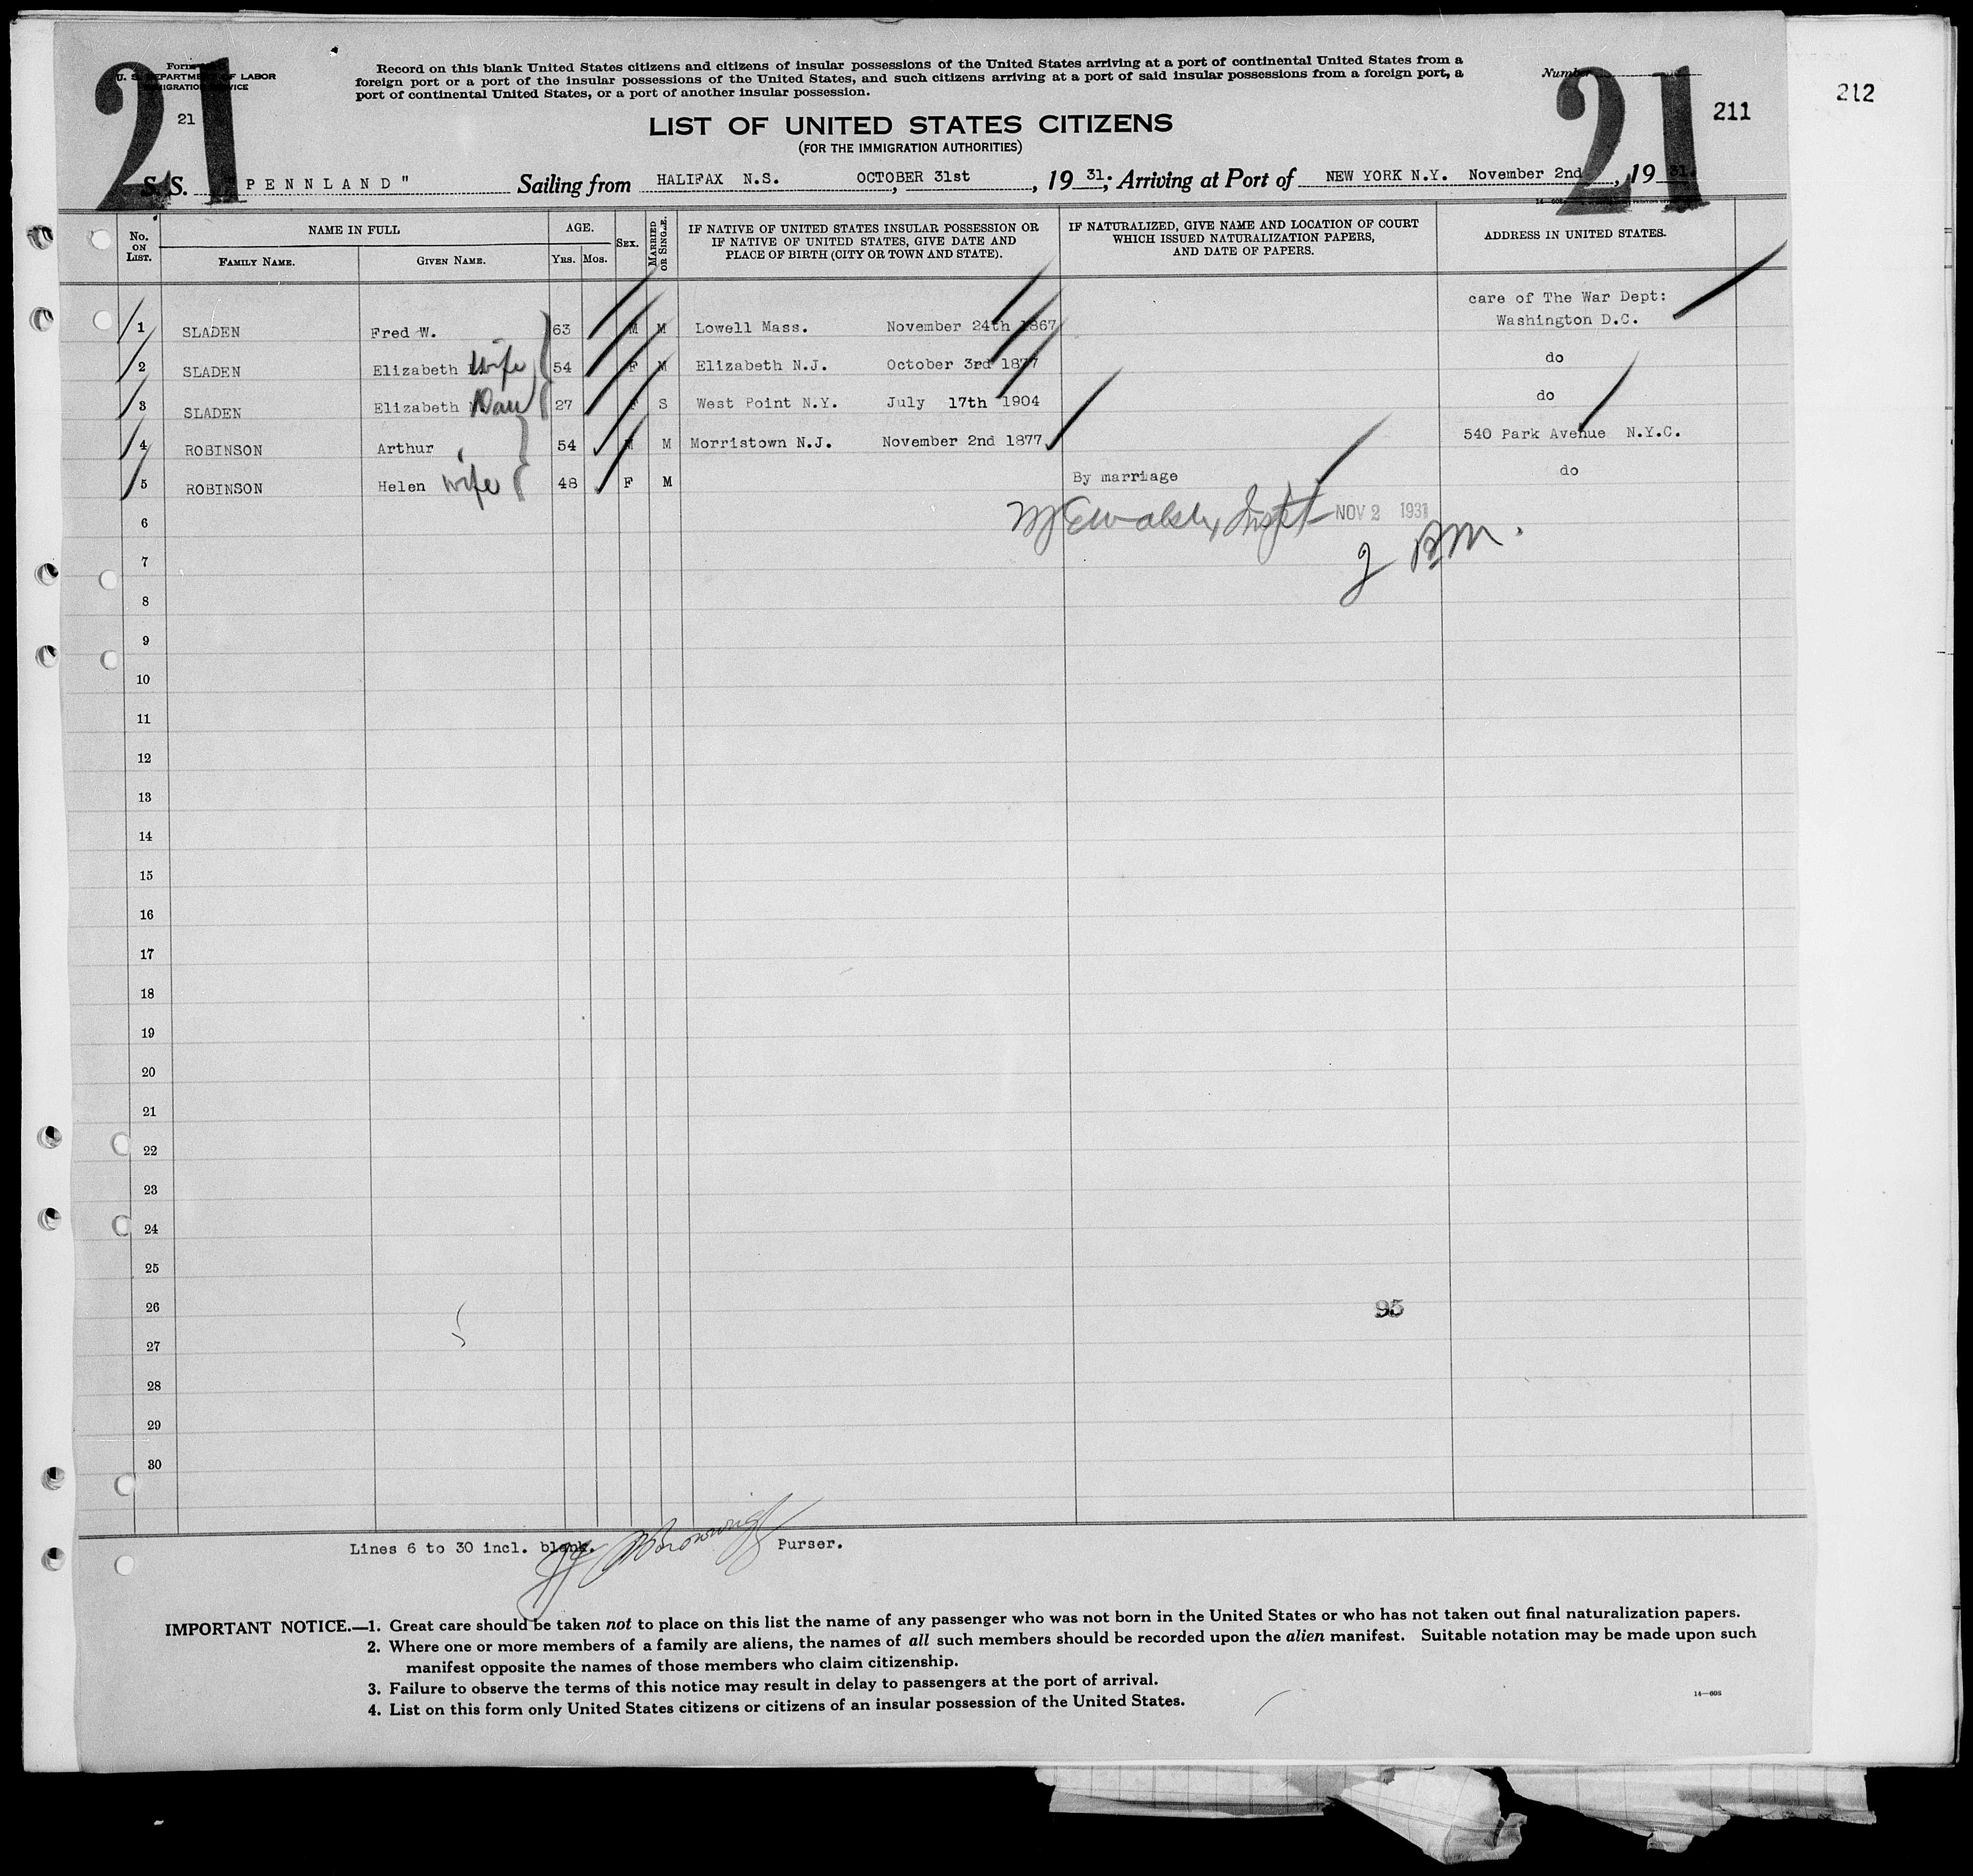 21
Form
U. S. DEPARTMENT OF LABOR
IMMIGRATION SERVICE
21
Record on this blank United States citizens and citizens of insular possessions of the United States arriving at a port of continental United States from a
foreign port or a port of the insular possessions of the United States, and such citizens arriving at a port of said insular possessions from a foreign port, a
port of continental United States, or a port of another insular possession.
Number
21
211
212
LIST OF UNITED STATES CITIZENS
(FOR THE IMMIGRATION AUTHORITIES)
S. S. "PENNLAND" Sailing from HALIFAX N.S. , OCTOBER 31st , 19 31; Arriving at Port of NEW YORK N.Y. November 2nd , 19 31.
No. ON LIST. NAME IN FULL FAMILY NAME. GIVEN NAME. AGE. YRS. MOS. SEX. MARRIED OR SINGLE. IF NATIVE OF UNITED STATES INSULAR POSSESSION OR IF NATIVE OF UNITED STATES, GIVE DATE AND PLACE OF BIRTH (CITY OR TOWN AND STATE). IF NATURALIZED, GIVE NAME AND LOCATION OF COURT WHICH ISSUED NATURALIZATION PAPERS, AND DATE OF PAPERS. ADDRESS IN UNITED STATES.
care of The War Dept:
1 SLADEN Fred W. 63 M M Lowell Mass. November 24th 1867 Washington D.C.
2 SLADEN Elizabeth wife 54 F M Elizabeth N.J. October 3rd 1877 do
3 SLADEN Elizabeth Dau 27 F S West Point N.Y. July 17th 1904 do
4 ROBINSON Arthur 54 M M Morristown N.J. November 2nd 1877 540 Park Avenue N.Y.C.
5 ROBINSON Helen wife 48 F M By marriage do
6 Inspt NOV 2 1931
7
8
9
10
11
12
13
14
15
16
17
18
19
20
21
22
23
24
25
26 95
27
28
29
30
Lines 6 to 30 incl. blank. Purser.
IMPORTANT NOTICE.—1. Great care should be taken not to place on this list the name of any passenger who was not born in the United States or who has not taken out final naturalization papers.
2. Where one or more members of a family are aliens, the names of all such members should be recorded upon the alien manifest. Suitable notation may be made upon such
manifest opposite the names of those members who claim citizenship.
3. Failure to observe the terms of this notice may result in delay to passengers at the port of arrival.
4. List on this form only United States citizens or citizens of an insular possession of the United States.
14—608